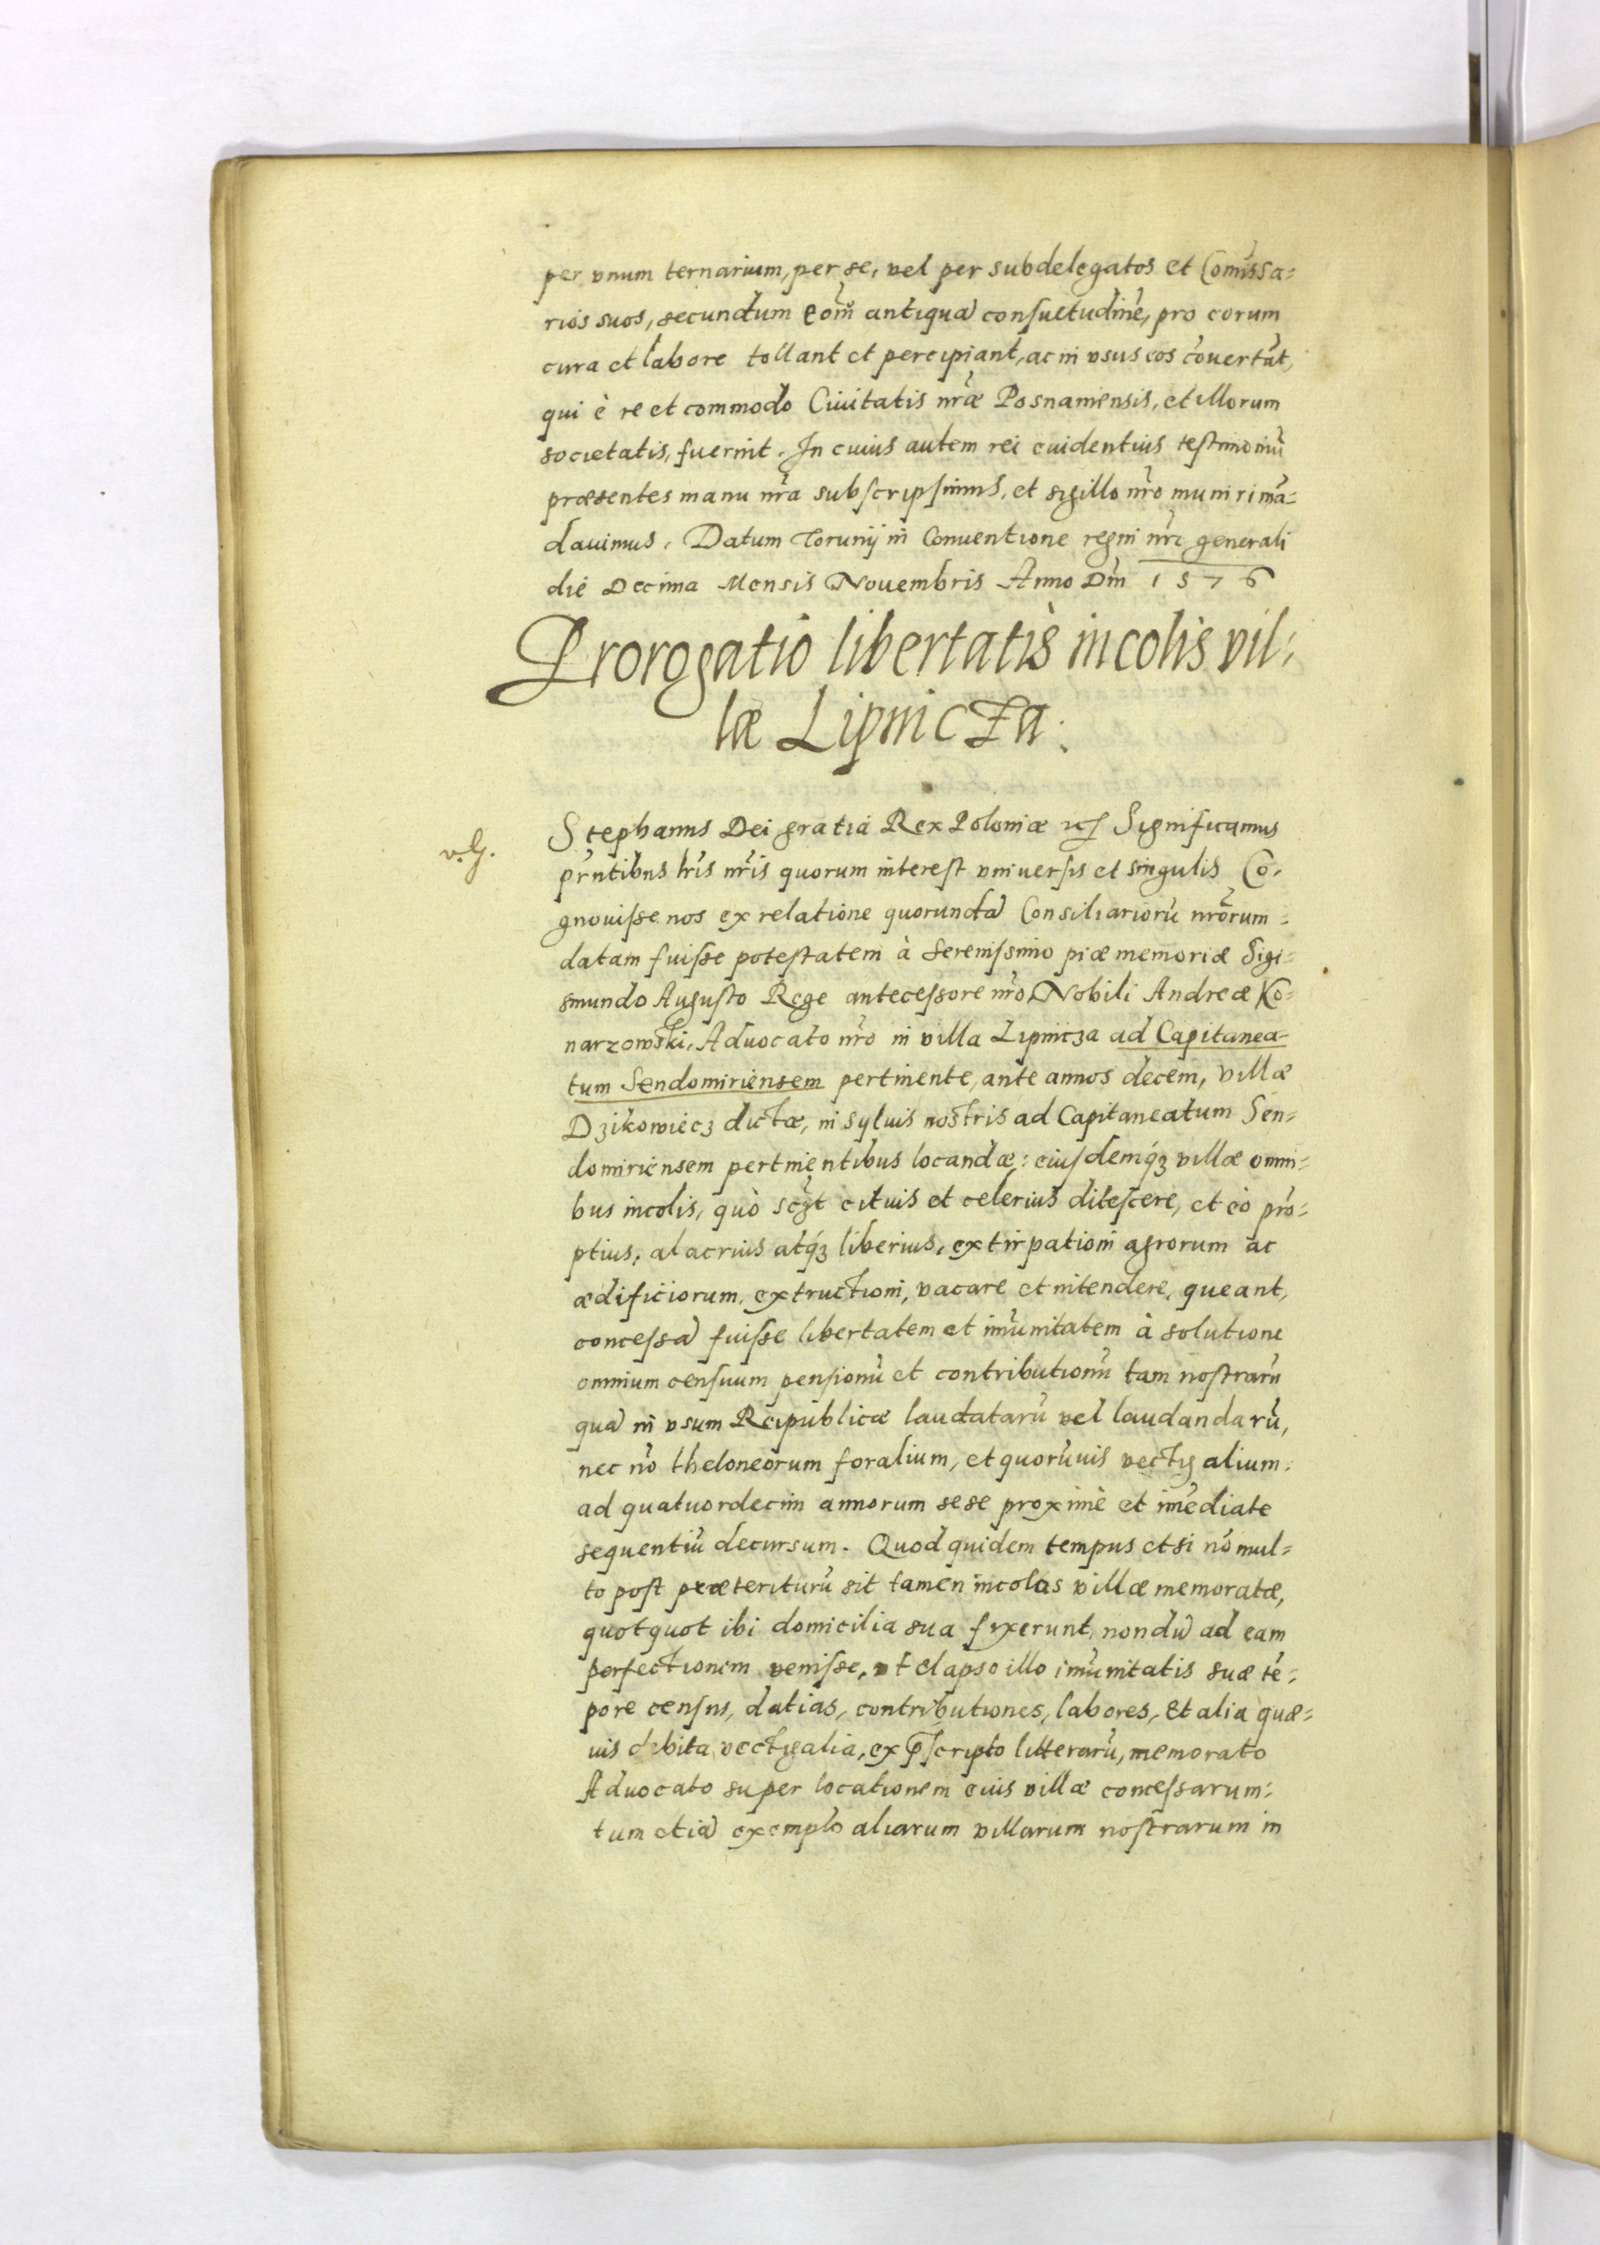 per vnum ternarium, per se, vel per subdelegatos et Com̃issa=
rios suos, secundum eõm antiquã consuetudinẽ, pro eorum
cura et labore tollant et percipiant, ac in vsus eos cõuertãt,
qui è re et commodo Ciuitatis nr̃æ Posnaniensis, et illorum
societatis, fuerint. In cuius autem rei euidentius testimoniũ
præsentes manu nr̃a subscripsimus, et sigillo nr̃o muniri mã=
dauimus. Datum Torunij in Conuentione regni nr̃i generali
die Decima Mensis Nouembris Anno Dm̃ 1576
Prorogatio libertatis incolis vil=
læ Lipnicza.
v.G.
Stephanus Dei gratia Rex Poloniæ etc Significamus
pñtibus lr̃is nr̃is quorum interest vniuersis et singulis Co=
gnouisse nos ex relatione quorundã Consiliariorũ nr̃orum
datam fuisse potestatem à Serenissimo piæ memoriæ Sigi=
smundo Augusto Rege antecessore nr̃o, Nobili Andreæ Ko=
narzowski, Aduocato nr̃o in villa Lipnicza ad Capitanea-
tum Sendomiriensem pertinente, ante annos decem, villæ
Dzikowiecz dictæ, in syluis nostris ad Capitaneatum Sen=
domiriensem pertinentibus locandæ: eiusdemq́ꝫ villæ omni=
bus incolis, quò scꝫt cituis et celerius ditescere, et eò prõ=
ptius, alacrius atq́ꝫ liberius, extirpationi agrorum ac
ædificiorum, extructioni, vacare et intendere, queant,
concessã fuisse libertatem et im̃unitatem à solutione
omnium censuum pensionũ et contributionũ tam nostrarũ
quã in vsum Reipublicæ laudatarũ vel laudandarũ,
nec nõ theloneorum foralium, et quorũuis vectigalium:
ad quatuordecim annorum sese proximè et im̃ediate
sequentiũ decursum. Quod quidem tempus etsi nõ mul=
to post præteriturũ sit tamen incolas villæ memoratæ,
quotquot ibi domicilia sua fixerunt, nondũ ad eam
perfectionem venisse, vt elapso illo im̃unitatis suæ tẽ=
pore census, datias, contributiones, labores, et alia quæ=
uis debita vectigalia, ex p̃scripto litterarũ, memorato
Aduocato super locationem eius villæ concessarum:
tum etiã exemplo aliarum villarum nostrarum in